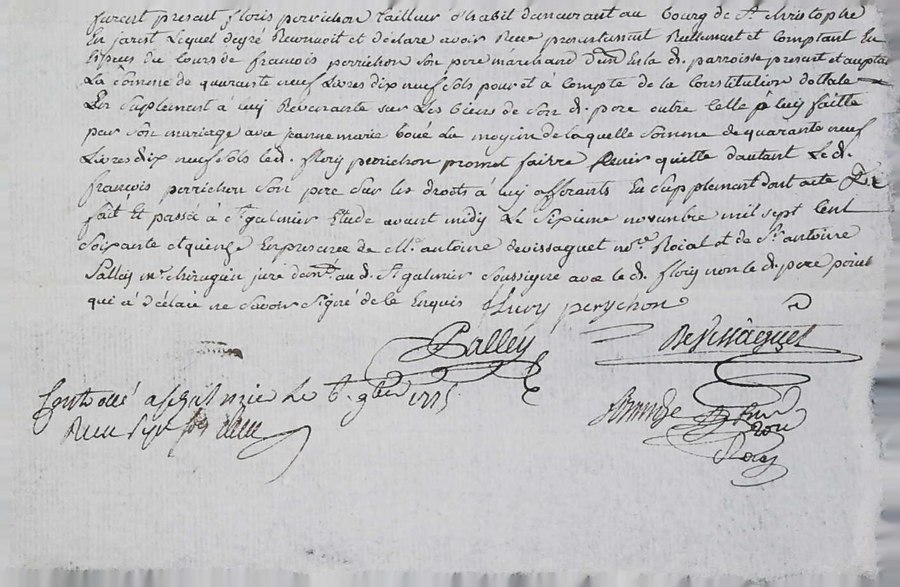 furent present floris perrichon tailleur d'habit demeurant au bourg de St christophe
En jarest Lequel degré Reconnoit et déclare avoir Reçu presentement Reellement et comptant En
Especes du Cours de françois perrichon son pere marchand dem. En la d. parroisse present et
La somme de quarante neuf Livres dix neuf sols pour et à compte de la Constitution dottale
En suplement à luy Revenante sur Les biens de son d. pere outre Celle p luy faitte
par son mariage avec jeanne marie boué Le moyein de laquelle somme de quarante neuf
Livres dix neuf sols le d. floris perrichon promet faire tenir quitte d'autant Le d.
françois perrichon son pere sur les droits à luy afferants En supplement dont acte
fait Et passé à St galmier Etude avant midy Le sixieme novembre mil sept Cent
soixante et quinze En presence de Me. antoine devissaguet nore. Roial et de Sr. antoine
Salley me. chirurgien juré demt. au d. St galmier soussigné avec le d. floris non le d. pere
qui a déclaré ne scavoir signé de ce Enquis perychon
Salley Devissaguet
Controllé a St galmier Le 6. 9bre 1775
Reçu